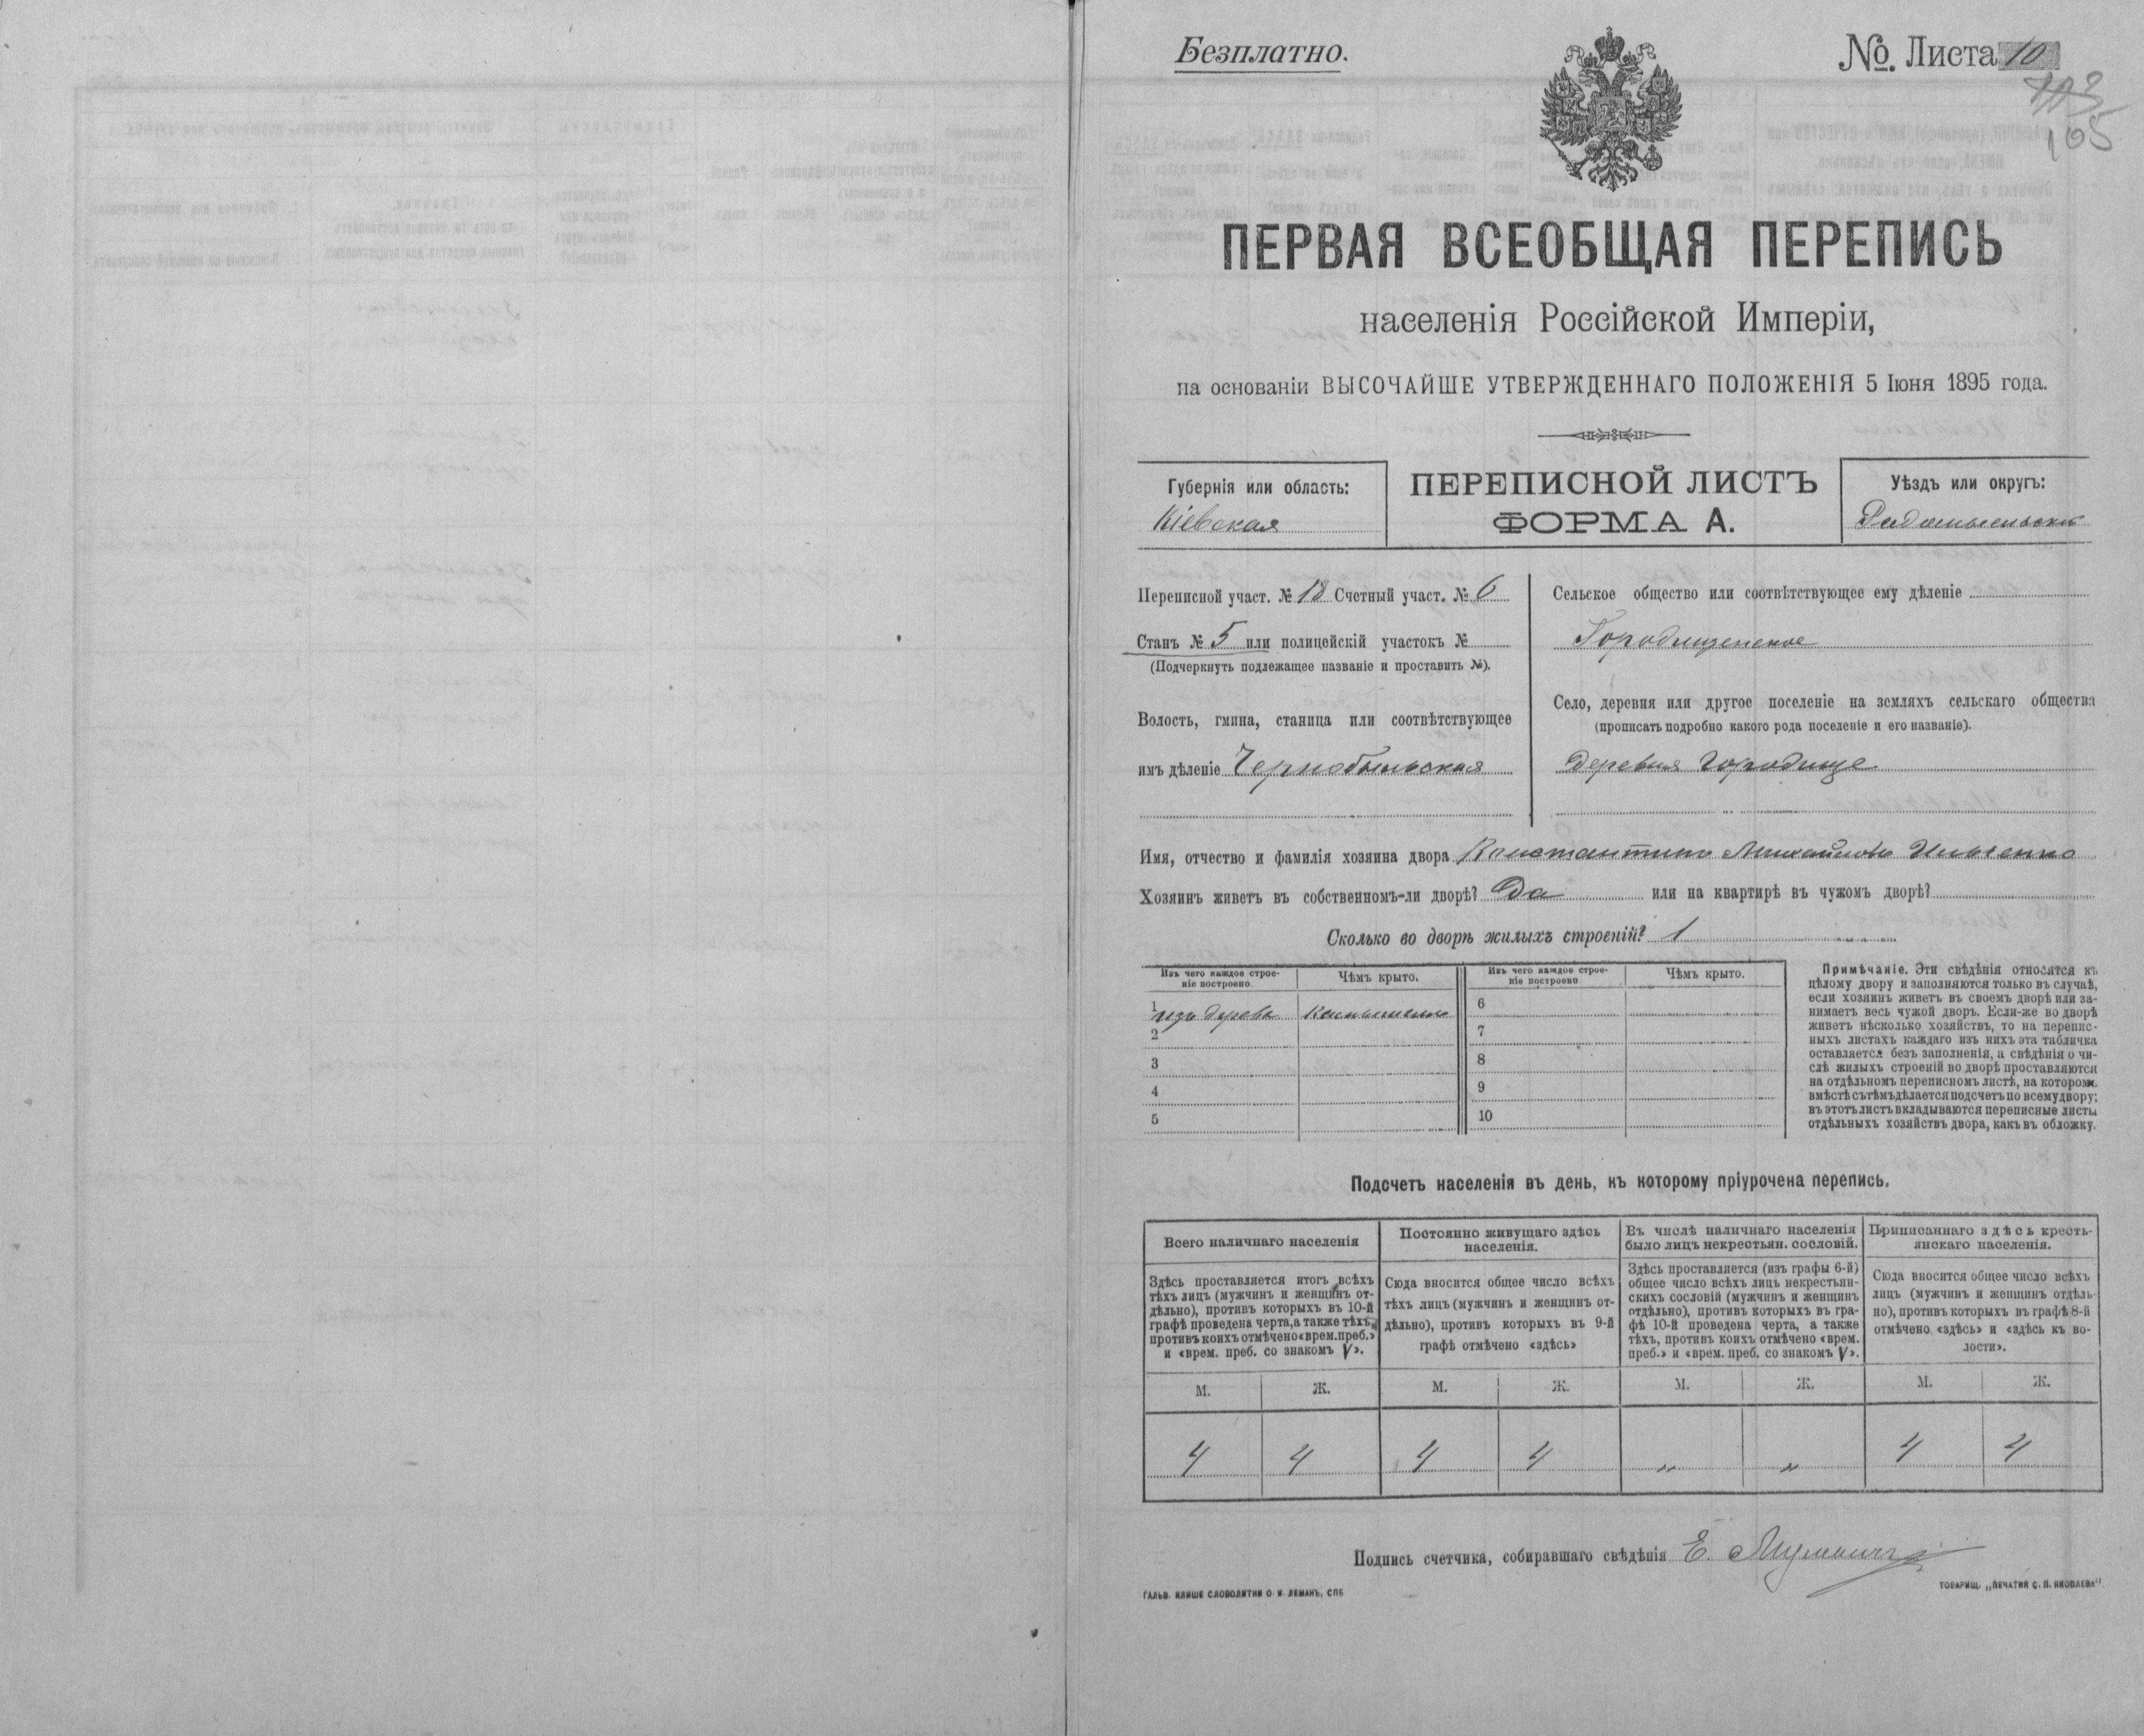 Безплатно.
№ Листа 10
103
105
ПЕРВАЯ ВСЕОБЩАЯ ПЕРЕПИСЬ
населенія Россійской Имперіи,
на основаніи ВЫСОЧАЙШЕ УТВЕРЖДЕННАГО ПОЛОЖЕНІЯ 5 Іюня 1895 года.
Губернія или область:
Кіевская
ПЕРЕПИСНОЙ ЛИСТЪ
ФОРМА А.
Уѣздъ или округъ:
Радомысльскій
Переписной участ. № 18 Счетный участ. № 6
Станъ № 5 или полицейскій участокъ №
(Подчеркнуть подлежащее названіе и проставить №).
Волость, гмина, станица или соотвѣтствующее
имъ дѣленіе Чернобыльская
Сельское общество или соотвѣтствующее ему дѣленіе
Городищенское
Село, деревня или другое поселеніе на земляхъ сельскаго общества
(прописать подробно какого рода поселеніе и его названіе).
деревня Городище
Имя, отчество и фамилія хозяина двора Константинъ Михайловъ Ильченко
Хозяинъ живетъ въ собственномъ-ли дворѣ? Да или на квартирѣ въ чужомъ дворѣ?
Сколько во дворѣ жилыхъ строеній? 1
Изъ чего каждое строе-
ніе построено
Чѣмъ крыто.
Изъ чего каждое строе-
ніе построено
Чѣмъ крыто.
1 изъ дерева
6
2
7
3
8
4
9
5
10
Примѣчаніе. Эти свѣдѣнія относятся къ
цѣлому двору и заполняются только въ случаѣ,
если хозяинъ живетъ въ своемъ дворѣ или за-
нимаетъ весь чужой дворъ. Если-же во дворѣ
живетъ нѣсколько хозяйствъ, то на перепис-
ныхъ листахъ каждаго изъ нихъ эта табличка
оставляется безъ заполненія, а свѣдѣнія о чи-
слѣ жилыхъ строеній во дворѣ проставляются
на отдѣльномъ переписномъ листѣ, на которомъ
вмѣстѣ съ тѣмъ дѣлается подсчетъ по всему двору;
въ этотъ листъ вкладываются переписные листы
отдѣльныхъ хозяйствъ двора, какъ въ обложку.
Подсчетъ населенія въ день, къ которому пріурочена перепись.
Всего наличнаго населенія
Здѣсь проставляется итогъ всѣхъ
тѣхъ лицъ (мужчинъ и женщинъ от-
дѣльно), противъ которыхъ въ 10-й
графѣ проведена черта, а также тѣхъ,
противъ коихъ отмѣчено «врем. преб.»
и «врем. преб. со знакомъ V».
Постоянно живущаго здѣсь
населенія.
Сюда вносится общее число всѣхъ
тѣхъ лицъ (мужчинъ и женщинъ от-
дѣльно), противъ которыхъ въ 9-й
графѣ отмѣчено «здѣсь»
Въ числѣ наличнаго населенія
было лицъ некрестьян. сословій.
Здѣсь проставляется (изъ графы 6-й)
общее число всѣхъ лицъ некрестьян-
скихъ сословій (мужчинъ и женщинъ
отдѣльно), противъ которыхъ въ гра-
фѣ 10-й проведена черта, а также
тѣхъ, противъ коихъ отмѣчено «врем.
преб.» и «врем. преб. со знакомъ V».
Приписаннаго здѣсь кресть-
янскаго населенія.
Сюда вносится общее число всѣхъ
лицъ (мужчинъ и женщинъ отдѣль-
но), противъ которыхъ въ графѣ 8-й
отмѣчено «здѣсь» и «здѣсь къ во-
лости».
М. Ж. М. Ж. М. Ж. М. Ж.
4 4 4 4 „ „ 4 4
Подпись счетчика, собиравшаго свѣдѣнія Е.
ГАЛЬВ. КЛИШЕ СЛОВОЛИТНИ О. И. ЛЕМАНЪ, СПБ
ТОВАРИЩ. „ПЕЧАТНЯ С. П. ЯКОВЛЕВА"